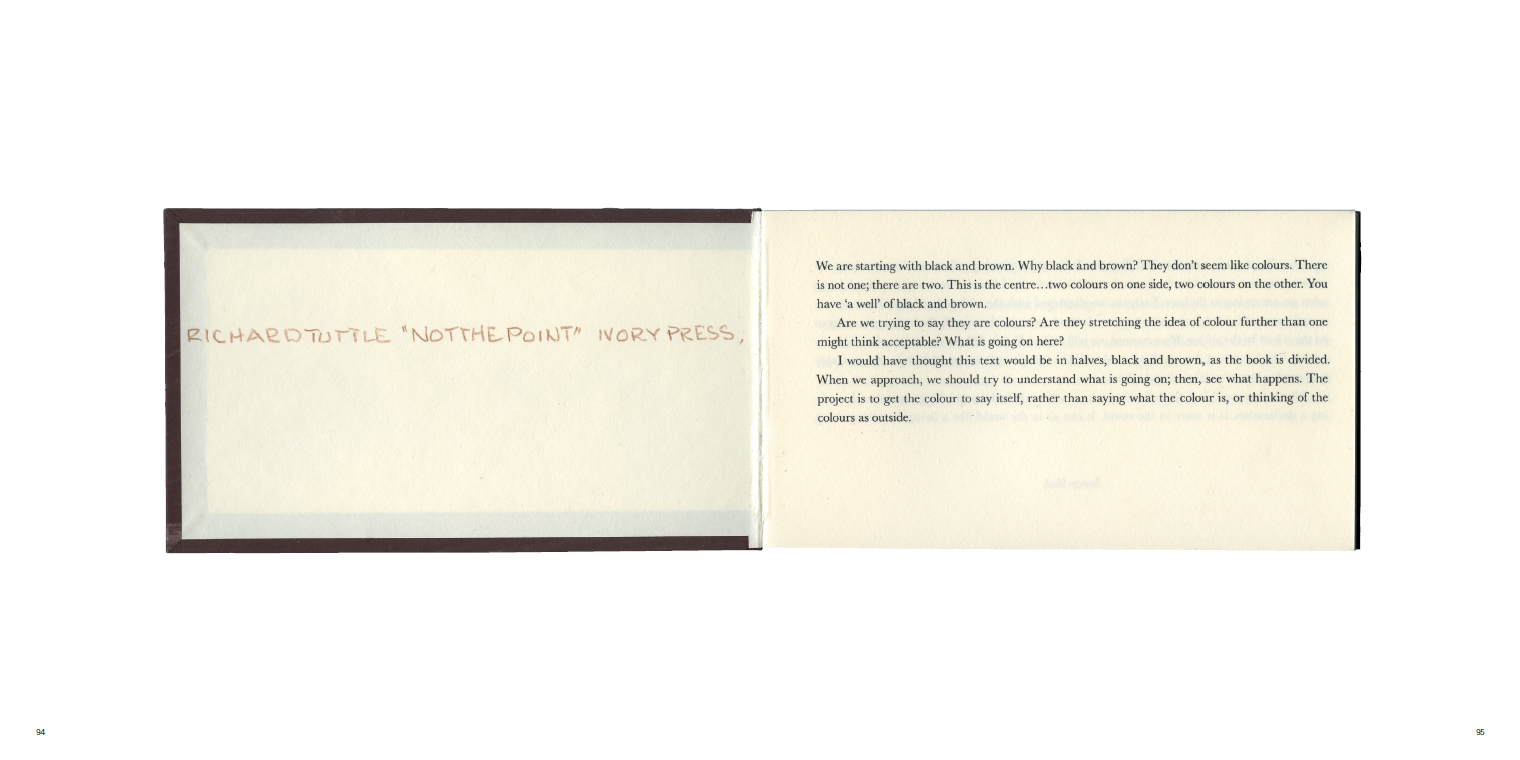 RICHARD TUTTLE "NOT THE POINT" IVORY PRESS,
We are starting with black and brown. Why black and brown? They don't seem like colours. There
is not one; there are two. This is the centre…two colours on one side, two colours on the other. You
have 'a well' of black and brown.
Are we trying to say they are colours? Are they stretching the idea of colour further than one
might think acceptable? What is going on here?
I would have thought this text would be in halves, black and brown, as the book is divided.
When we approach, we should try to understand what is going on; then, see what happens. The
project is to get the colour to say itself, rather than saying what the colour is, or thinking of the
colours as outside.
94
95